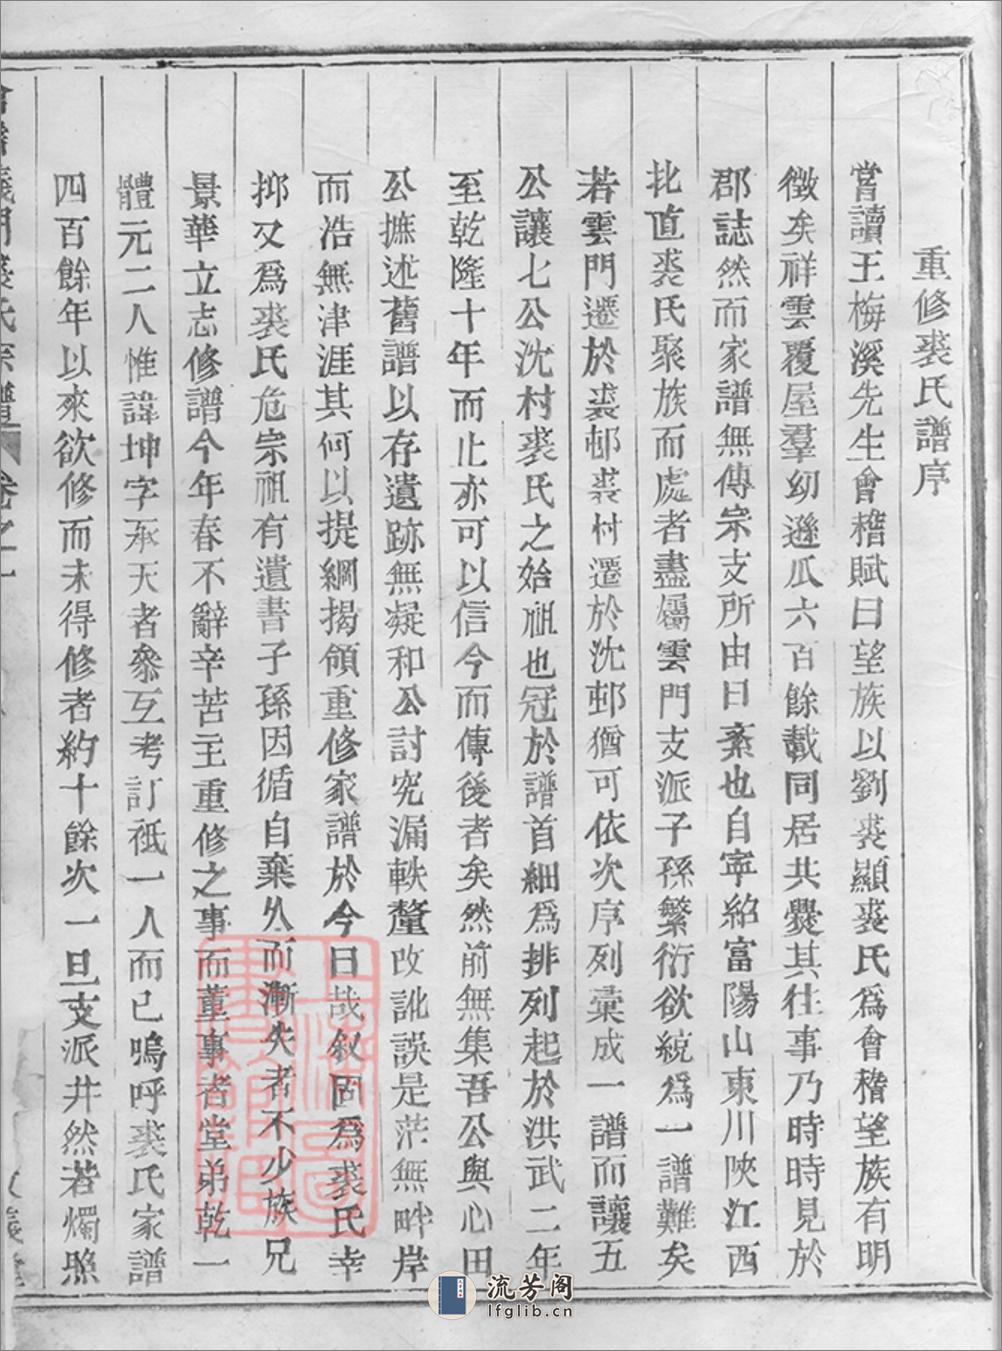 重修裘氏譜序
嘗讀王梅溪先生會稽賦曰望族以劉裘顯裘氏爲會稽望族有明
徵矣祥雲覆屋羣幼遜瓜六百餘載同居共爨其往事乃時時見於
郡誌然而家譜無傳宗支所由日紊也自寧紹富陽山東川陝江西
北直裘氏聚族而處者盡屬雲門支派子孫繁衍欲統爲一譜難矣
若雲門遷於裘邨裘村遷於沈邨猶可依次序列彙成一譜而讓五
公讓七公沈村裘氏之始祖也冠於譜首細爲排列起於洪武二年
至乾隆十年而止亦可以信今而傳後者矣然前無集吾公與心田
公摭述舊譜以存遺跡無凝和公討究漏軼釐改訛誤是茫無畔岸
而浩無津涯其何以提綱揭領重修家譜於今日哉敘固爲裘氏幸
抑又爲裘氏危宗祖有遺書子孫因循自棄久而漸失者不少族兄
景華立志修譜今年春不辭辛苦主重修之事而董事者堂弟乾一
體元二人惟諱坤字承天者叅互考訂祗一人而已嗚呼裘氏家譜
四百餘年以來欲修而未得修者約十餘次一旦支派井然若燭照
會稽義門裘氏宗譜 卷之一
流芳阁
lfglib.cn